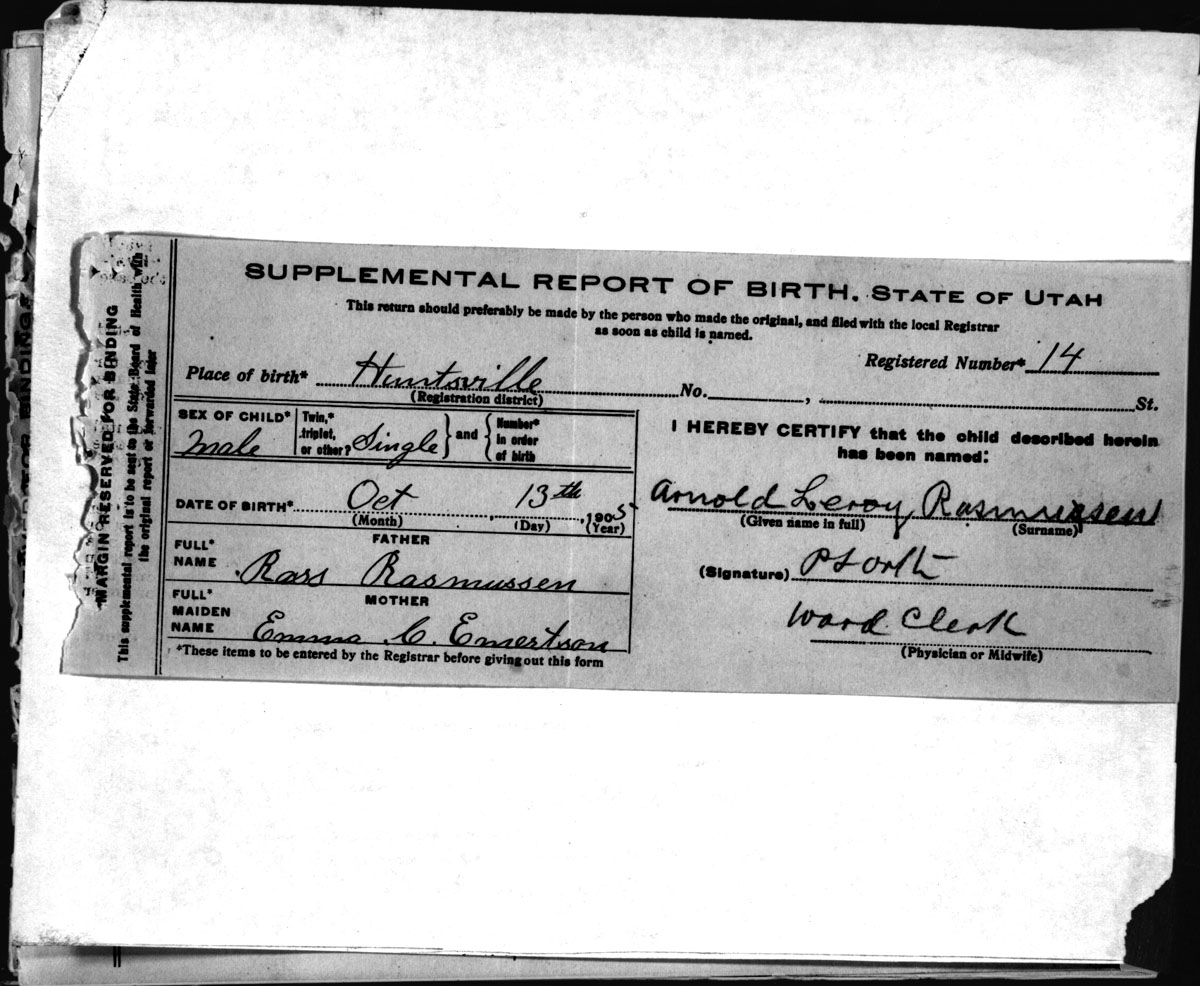 SUPPLEMENTAL REPORT OF BIRTH. STATE OF UTAH
This return should preferably be made by the person who made the original, and filed with the local Registrar
as soon as child is named.
Registered Number* 14
Place of birth* Huntsville No. , St.
(Registration district)
SEX OF CHILD* Male
Twin,* triplet, or other? Single } and { Number* in order of birth
DATE OF BIRTH* Oct 13th, 1905
(Month) (Day) (Year)
FATHER
FULL* NAME Rass Rasmussen
MOTHER
FULL* MAIDEN NAME Emma C. Emertson
*These items to be entered by the Registrar before giving out this form
I HEREBY CERTIFY that the child described herein
has been named:
Arnold Leroy Rasmussen
(Given name in full) (Surname)
(Signature)
Ward Clerk
(Physician or Midwife)
MARGIN RESERVED FOR BINDING
This supplemental report is to be sent to the State Board of Health with
the original report or forwarded later